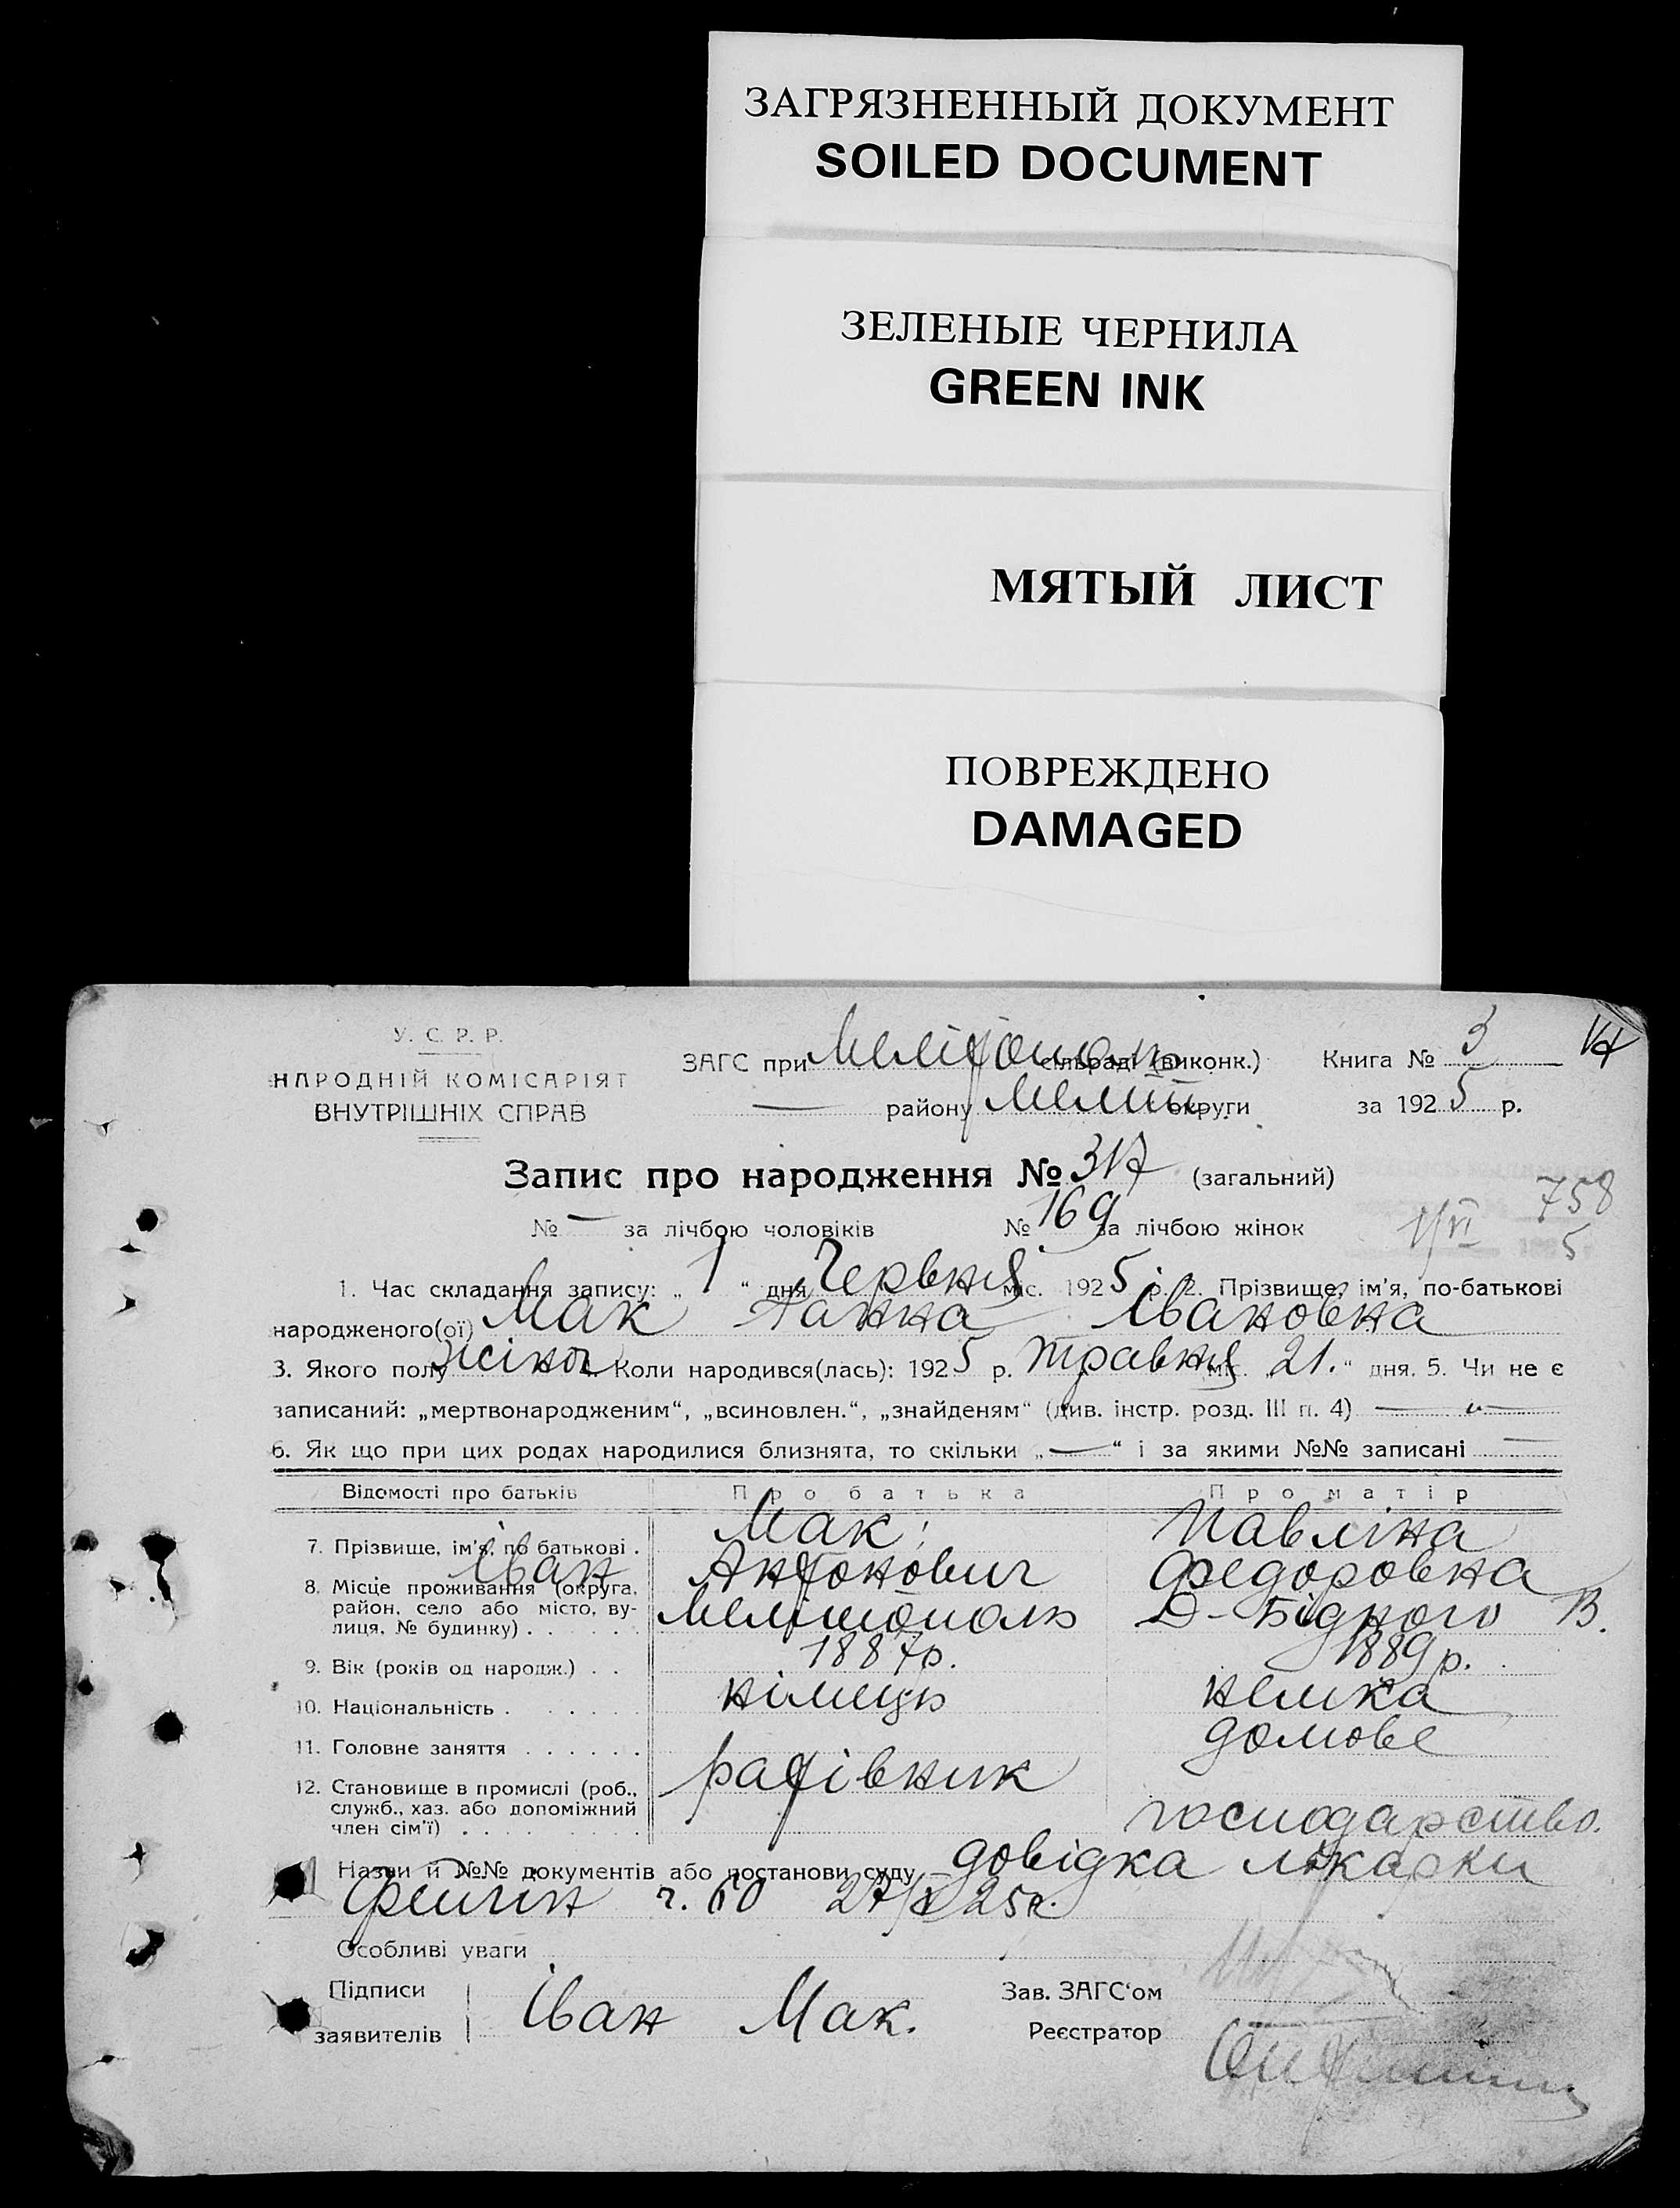 ЗАГРЯЗНЕННЫЙ ДОКУМЕНТ
SOILED DOCUMENT
ЗЕЛЕНЫЕ ЧЕРНИЛА
GREEN INK
МЯТЫЙ ЛИСТ
ПОВРЕЖДЕНО
DAMAGED
У. С. Р. Р.
НАРОДНІЙ КОМІСАРІЯТ
ВНУТРІШНІХ СПРАВ
ЗАГС при Мелітополь сільраді (виконк.) Книга № 3
— району Меліт. округи за 1925 р.
Запис про народження № 317 (загальний)
758
№ — за лічбою чоловіків № 169 за лічбою жінок 1/VI 5
1. Час складання запису: „ 1 “ дня Червня міс. 1925 р. 2. Прізвище, ім'я, по-батькові
народженого(ої) Мак Ганна Івановна
3. Якого полу жіноч. Коли народився(лась): 1925 р. травня міс. „21.“ дня. 5. Чи не є
записаний: „мертвонародженим“, „всиновлен.“, „знайденям“ (див. інстр. розд. III п. 4) — „ —
6. Як що при цих родах народилися близнята, то скільки „—“ і за якими №№ записані —
Відомості про батьків Про батька Про матір
7. Прізвище, ім'я, по батькові . Мак Павліна
Іван Антонович Федоровна
8. Місце проживання (округа, район, село або місто, вулиця, № будинку) . . . . . Мелітополь Д-Бідного В.
9. Вік (років од народж.) . . 1887р. 1889р.
10. Національність . . . . . . німець немка
11. Головне заняття . . . . . . домове
12. Становище в промислі (роб., служб., хаз. або допоміжний член сім'ї) . . . . . . . . робівник господарство.
Назви й №№ документів або постанови суду довідка лікарки
ч. 60 27/V 25р.
Особливі уваги
Підписи
заявителів Іван Мак.
Зав. ЗАГС'ом
Реєстратор